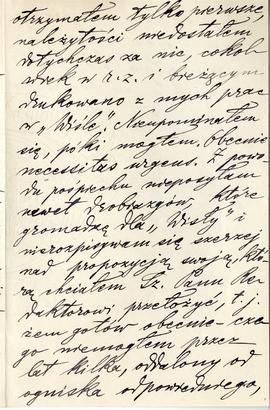 otrzymałem tylko pierwsze,
należytości niedostałem
dotychczas za nic, cokol-
wiek w r. z. i bieżącym
drukowano z mych prac
w „Wiśle”. Nieupominałem
się, póki mogłem, obecnie
necessitas urgens. Z powo-
du pośpiechu nieposyłam
nawet drobiazgów, które
gromadzę dla „Wisły” i
nierozpisywam się szerzej
nad propozycją swoją, któ-
rą chciałem Sz. Panu Re-
daktorowi przełożyć, t. j.
żem gotów obecnie – cze-
go niemogłem przez
lat kilka, oddalony od
ogniska odpowiedniego,